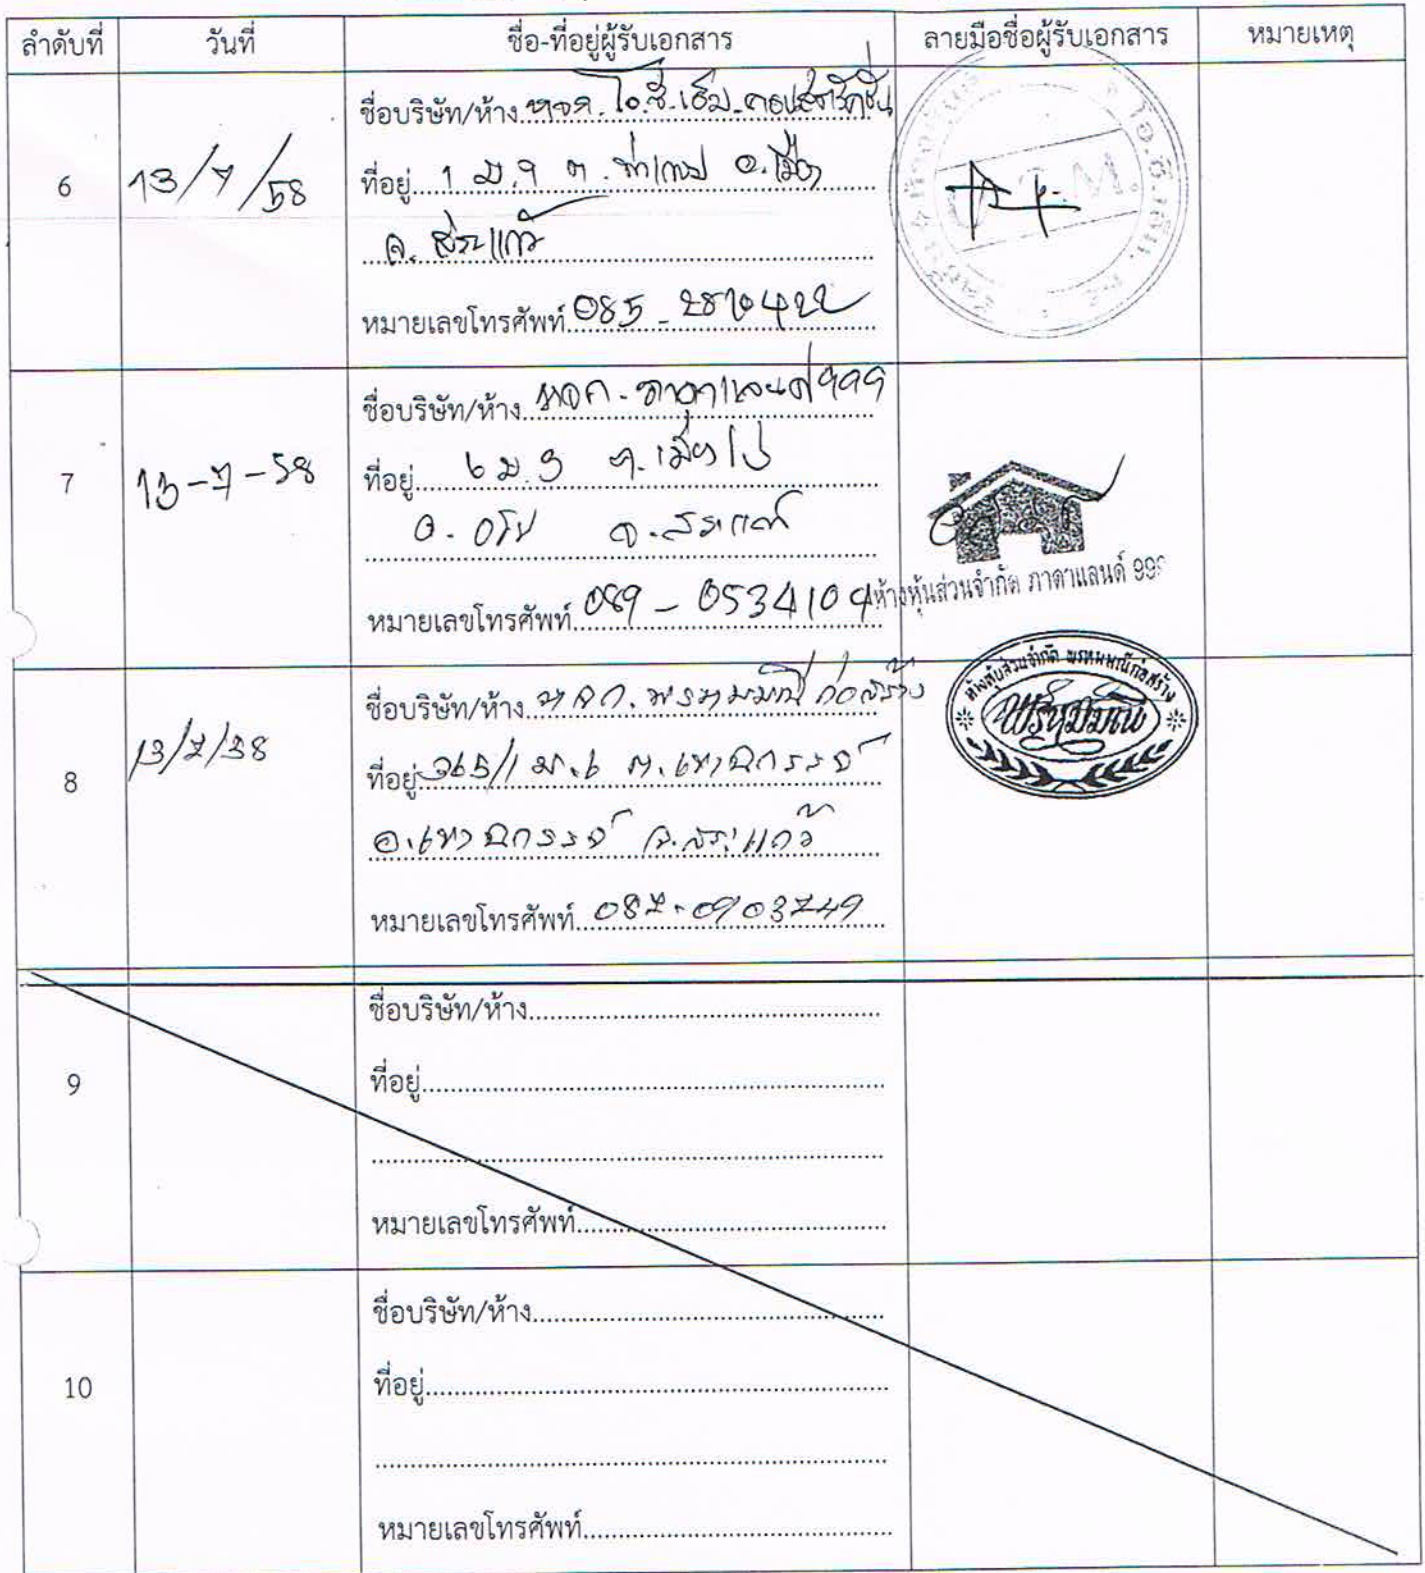 ลำดับที่ วันที่ ชื่อ-ที่อยู่ผู้รับเอกสาร ลายมือชื่อผู้รับเอกสาร หมายเหตุ
6 13/7/58
ชื่อบริษัท/ห้าง หจก. โอ.ซี.เอ็ม.คอนสตรัคชั่น
ที่อยู่ 1 ม.9 ต.ท่าเกษม อ.เมือง
จ. สระแก้ว
หมายเลขโทรศัพท์
7 13-7-58
ชื่อบริษัท/ห้าง หจก. ภาดาแลนด์ 999
ที่อยู่ 6 ม.9 ต.เมืองไผ่
อ. อรัญ จ.สระแก้ว
หมายเลขโทรศัพท์ 089-0534104
ห้างหุ้นส่วนจำกัด ภาดาแลนด์ 999
8 13/7/58
ชื่อบริษัท/ห้าง หจก. พรหมมณี ก่อสร้าง
ที่อยู่ 365/1 ม.6 ต.เขาฉกรรจ์
อ.เขาฉกรรจ์ จ.สระแก้ว
หมายเลขโทรศัพท์ 087-0903749
ห้างหุ้นส่วนจำกัด พรหมมณีก่อสร้าง
พรหมมณี
9
ชื่อบริษัท/ห้าง
ที่อยู่
หมายเลขโทรศัพท์
10
ชื่อบริษัท/ห้าง
ที่อยู่
หมายเลขโทรศัพท์